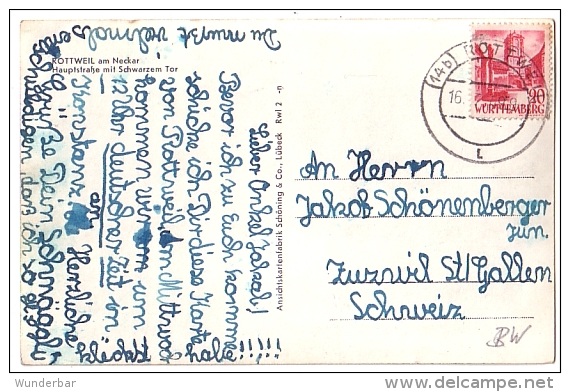 ROTTWEIL am Neckar
Hauptstraße mit Schwarzem Tor
Lieber Onkel Jakob!
Bevor ich zu Euch komme
schicke ich Dir diese Karte
von Rottweil. Am Mittwoch
kommen wir um
12 Uhr deutscher Zeit in
Konstanz an. Herzliche
Grüße Dein Schwiegli
Du mußt vielmals
entschuldigen, daß ich so ge-
kleckst habe!!!!!
Ansichtskartenfabrik Schöning & Co., Lübeck Rwl 2 -n
(14b) ROTTWEIL
16.
20
WÜRTTEMBERG
An Herrn
Jakob Schönenberger
jun.
Zuzwil St/Gallen
Schweiz
BW
Wunderbar
delcampe.net